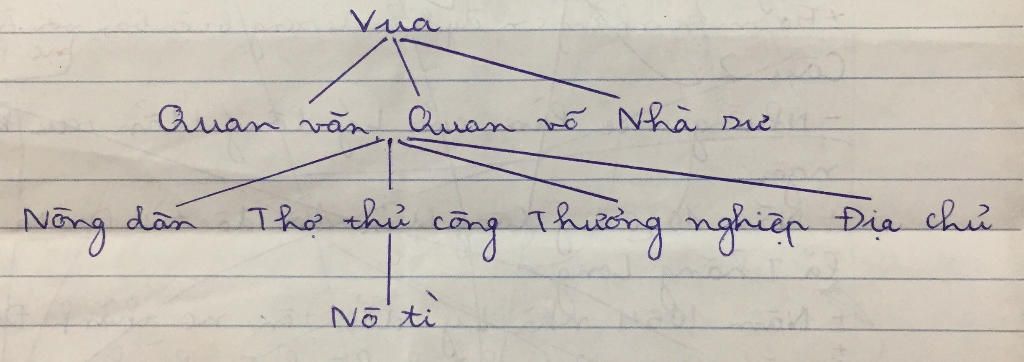 Vua
Quan văn Quan võ Nhà sư
Nông dân Thợ thủ công Thương nghiệp Địa chủ
Nô tì